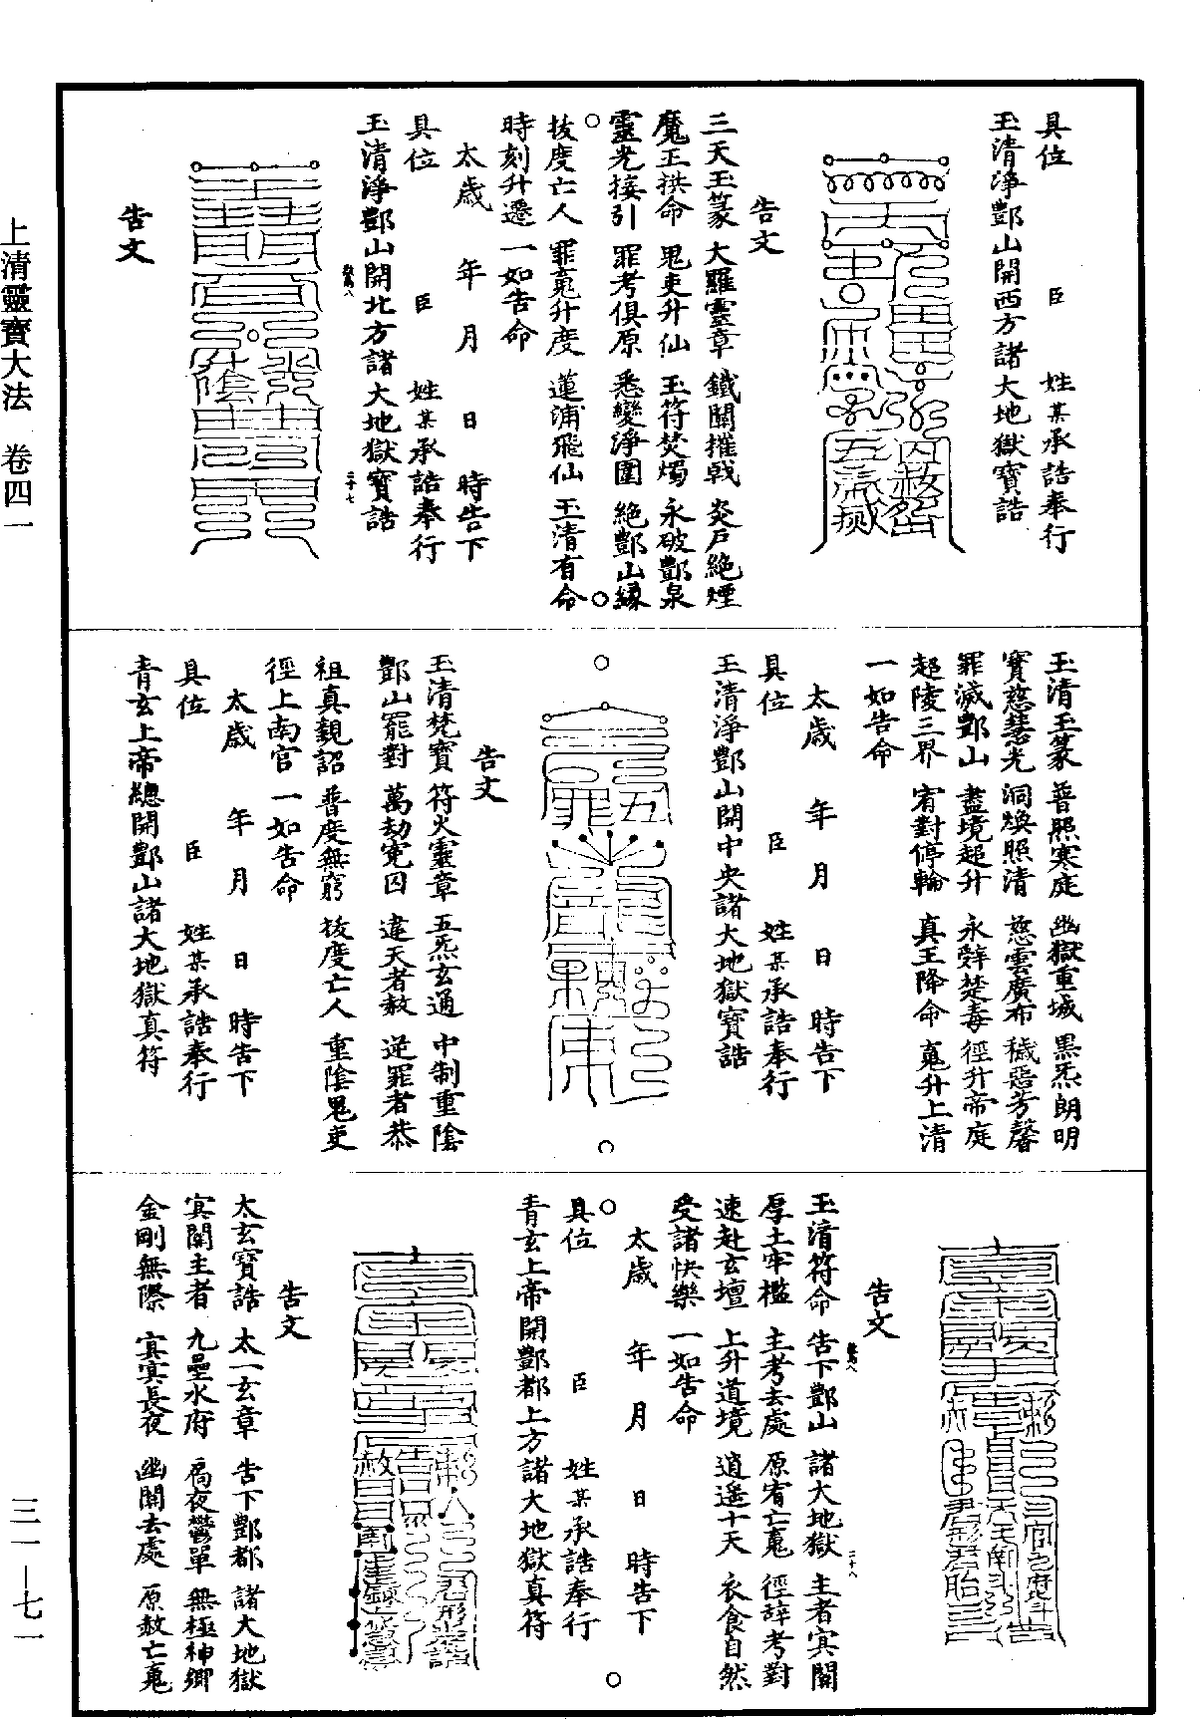 具位　臣　姓某承誥奉行
玉清淨酆山開西方諸大地獄寶誥
告文
三天玉篆　大羅靈章　鐵關摧戟　炎戶絕煙
魔王拱命　鬼吏升仙　玉符焚燭　永破酆泉
靈光接引　罪考俱原　悉變淨圍　絕酆山緣
拔度亡人　罪䰟升度　蓮浦飛仙　玉清有命
時刻升遷　一如告命
太歲　年　月　日　時告下
具位　臣　姓某承誥奉行
玉清淨酆山開北方諸大地獄寶誥
二十七
告文
玉清玉篆　普照寒庭　幽獄重城　黑炁朗明
寶慈慧光　洞煥照清　慈雲廣布　穢惡芳馨
罪滅酆山　盡境超升　永辭楚毒　徑升帝庭
超陵三界　宥對停輪　真王降命　䰟升上清
一如告命
太歲　年　月　日　時告下
具位　臣　姓某承誥奉行
玉清淨酆山開中央諸大地獄寶誥
告文
玉清梵寶　符火靈章　五炁玄通　中制重陰
酆山罷對　萬劫寃囚　違天者赦　逆罪者恭
祖真親詔　普度無窮　拔度亡人　重陰鬼吏
徑上南宮　一如告命
太歲　年　月　日　時告下
具位　臣　姓某承誥奉行
青玄上帝總開酆山諸大地獄真符
告文
玉清符命　告下酆山　諸大地獄　主者冥關
厚土牢檻　主考去處　原宥亡䰟　徑辭考對
速赴玄壇　上升道境　逍遙十天　衣食自然
受諸快樂　一如告命
二十八
太歲　年　月　日　時告下
具位　臣　姓某承誥奉行
青玄上帝開酆都上方諸大地獄真符
告文
太玄寶誥　太一玄章　告下酆都　諸大地獄
冥關主者　九壘水府　夜鬱單　無極神鄉
金剛無際　冥冥長夜　幽關去處　原赦亡䰟
上清靈寶大法　卷四一
三一—七一